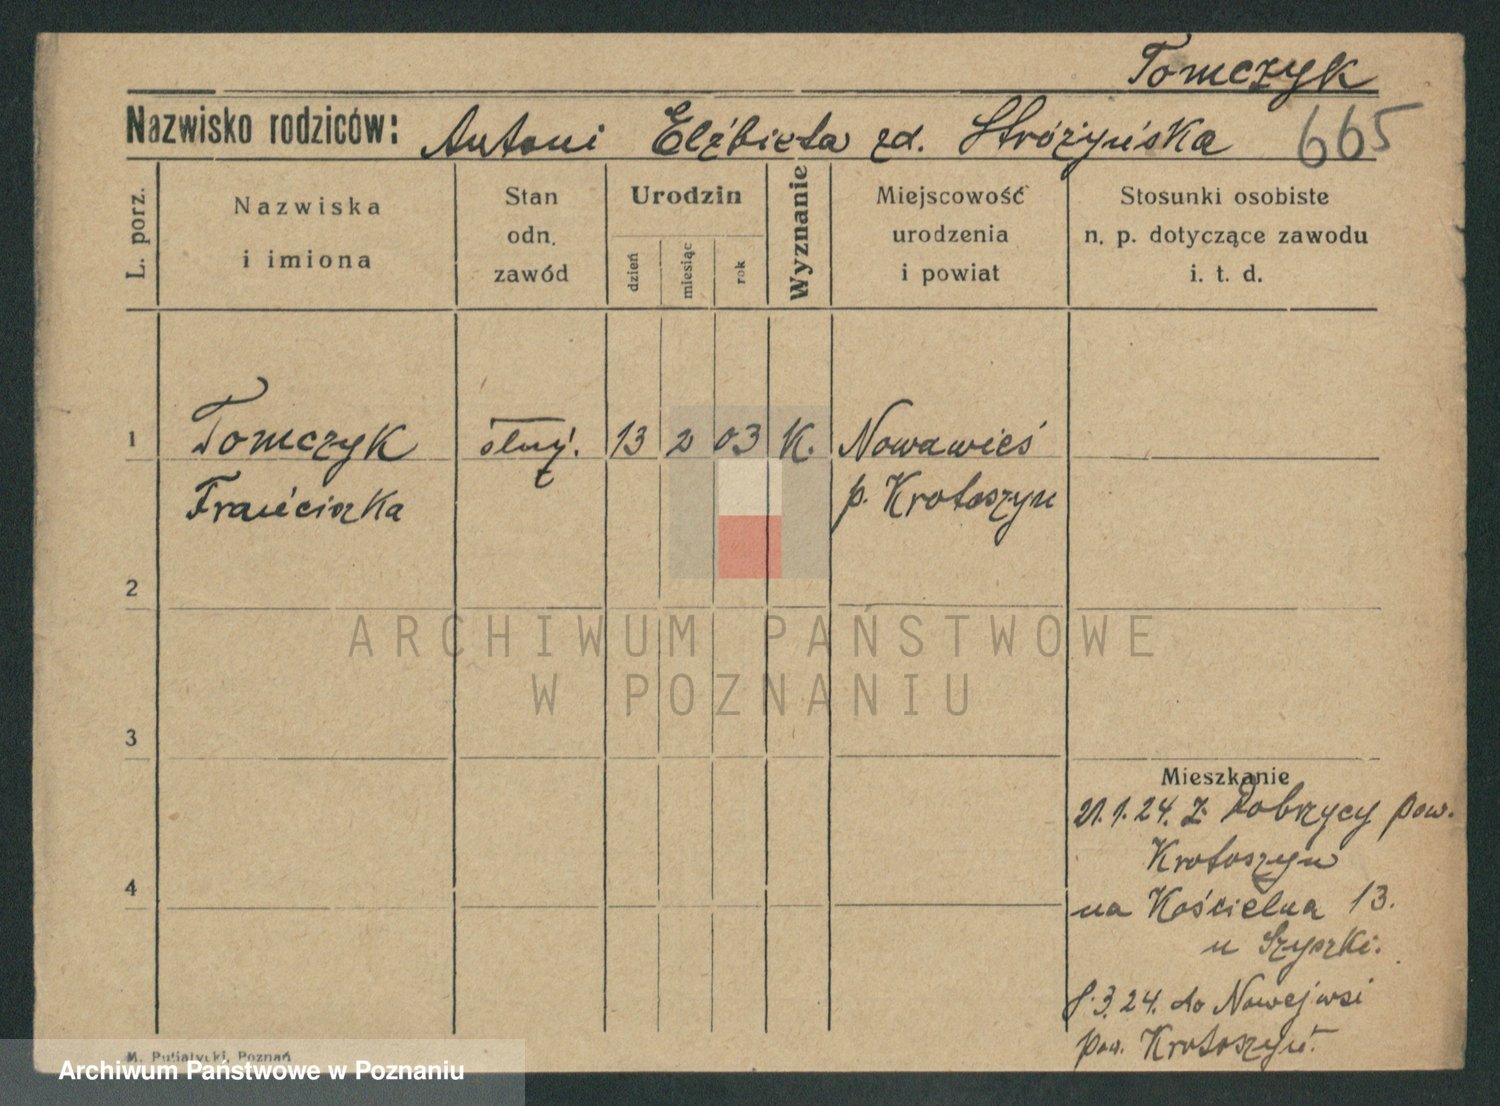 Tomczyk
Nazwisko rodziców: Antoni Elżbieta zd. Stróżyńska 665
L. porz.
Nazwiska
i imiona
Stan
odn.
zawód
Urodzin
dzień
miesiąc
rok
Wyznanie
Miejscowość
urodzenia
i powiat
Stosunki osobiste
n. p. dotyczące zawodu
i. t. d.
1 Tomczyk służ. 13 2 03 K. Nowawieś
Franciszka p. Krotoszyn
2
ARCHIWUM PAŃSTWOWE
W POZNANIU
3
Mieszkanie
21.1.24. z Dobrzycy pow.
Krotoszyn
4
na Kościelna 13.
u Szyszki.
8.3.24. do Nowejwsi
pow. Krotoszyn.
M. Putiatycki, Poznań
Archiwum Państwowe w Poznaniu